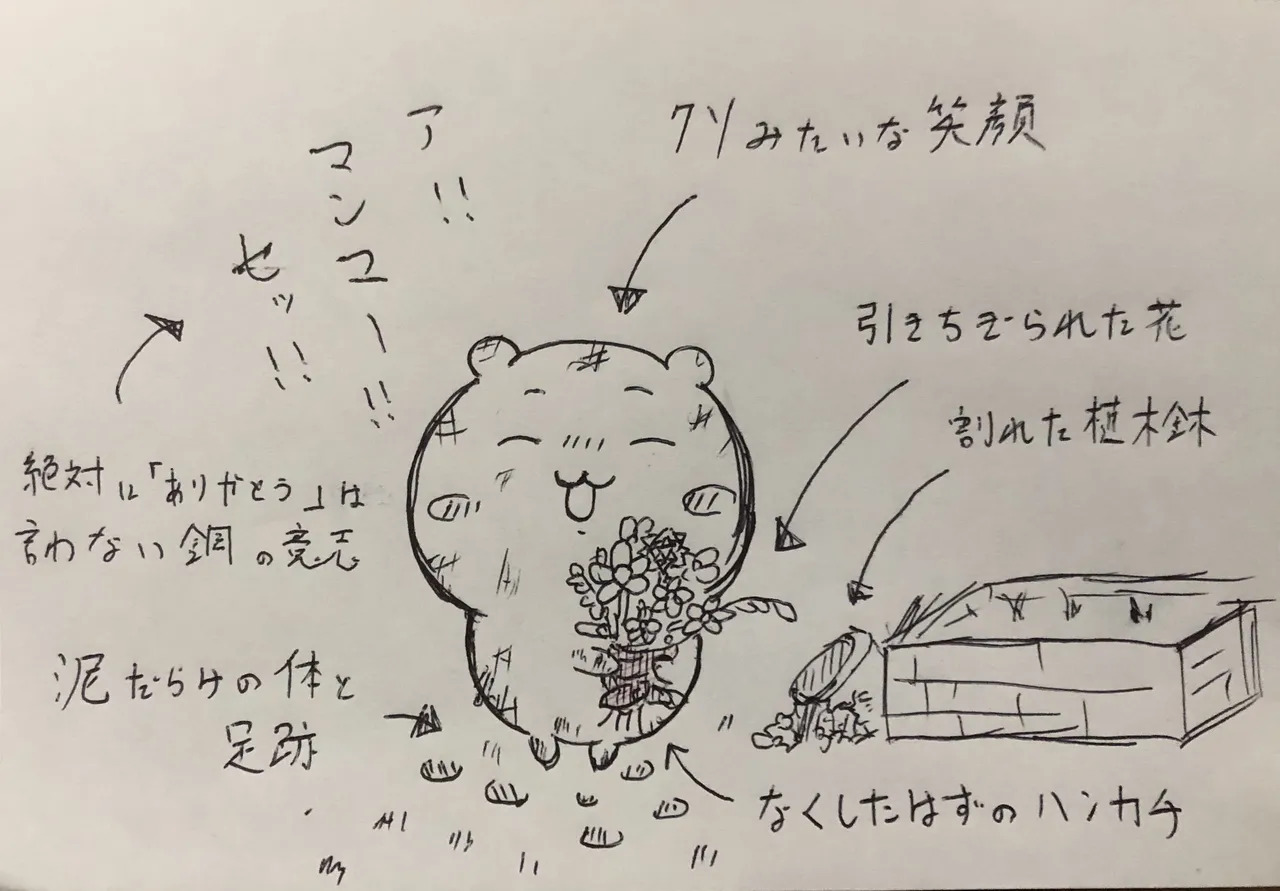 クソみたいな笑顔
ア!!
マンユー!!
セッ!!
引きちぎられた花
割れた植木鉢
絶対に「ありがとう」は
言わない鋼の意志
泥だらけの体と
足跡
なくしたはずのハンカチ